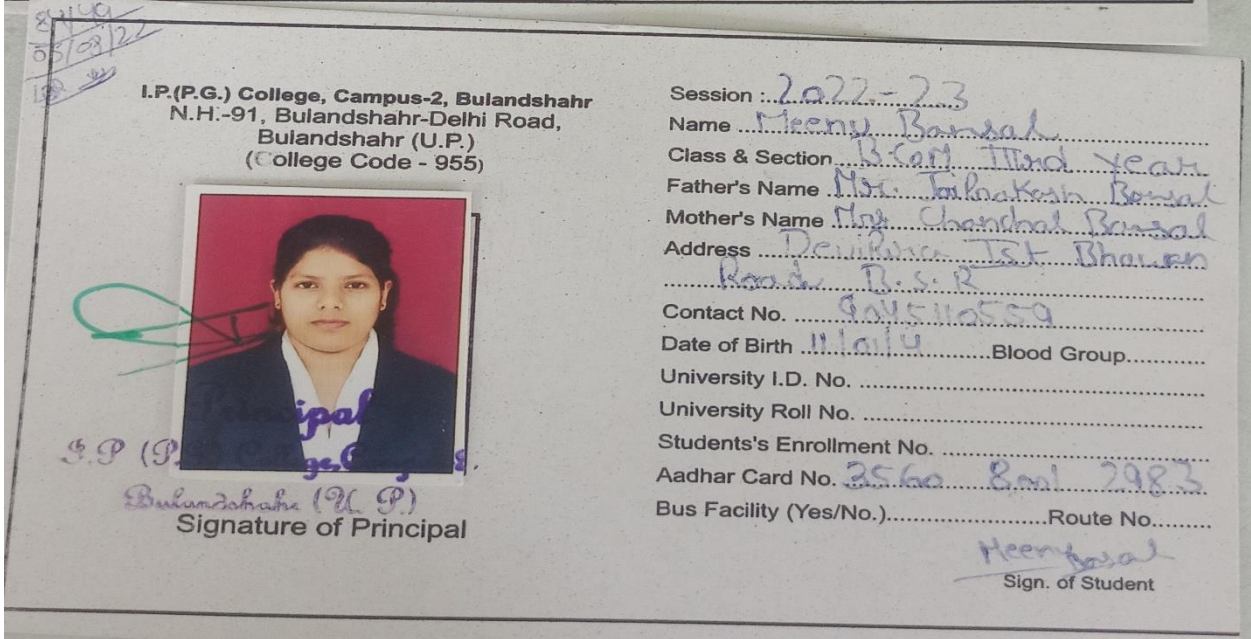 05/08/22
I.P.(P.G.) College, Campus-2, Bulandshahr
N.H.-91, Bulandshahr-Delhi Road,
Bulandshahr (U.P.)
(College Code - 955)
Principal
I.P (P.
Bulandshahr (U. P.)
Signature of Principal
Session : 2022-23
Name Meenu Bansal
Class & Section B.Com IIIrd year
Father's Name Mr. Jaiprakash Bansal
Mother's Name Mrs. Chandhal Bansal
Address Devipura Ist Bhawan
Road B.S.R
Contact No. 9045110559
Date of Birth Blood Group
University I.D. No.
University Roll No.
Students's Enrollment No.
Aadhar Card No. 3560 2983
Bus Facility (Yes/No.) Route No.
Meenu Bansal
Sign. of Student